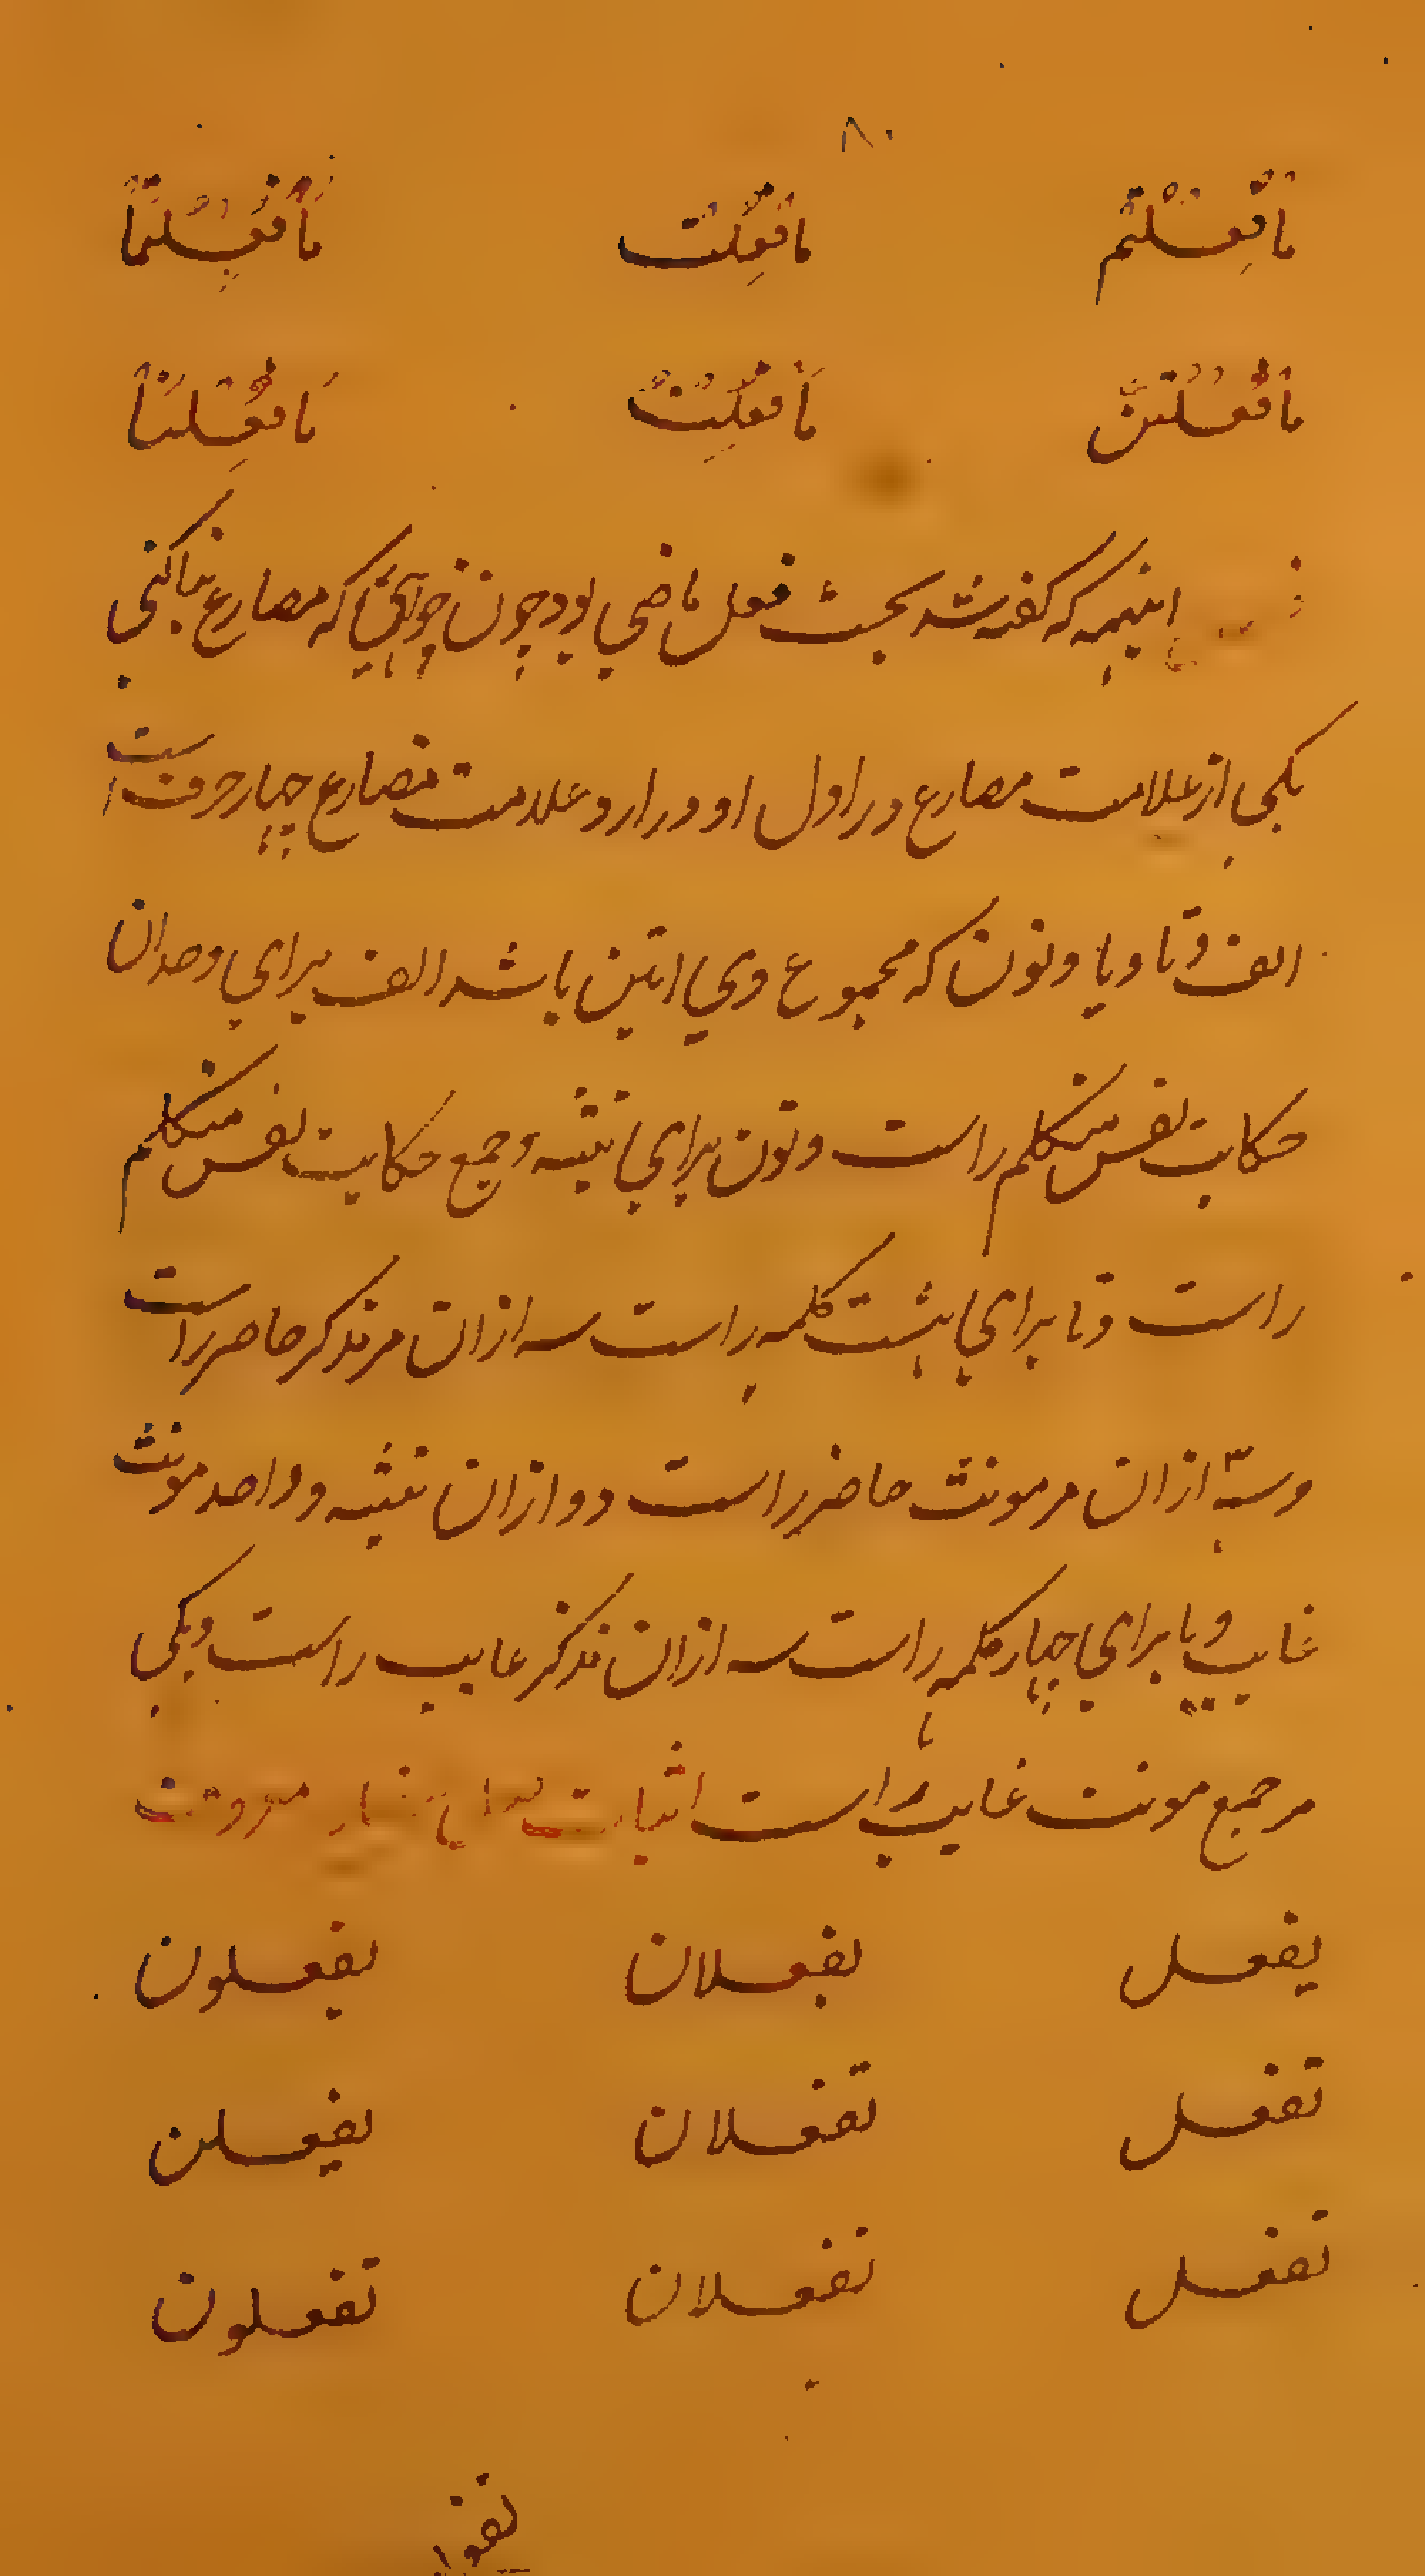 ۸۰
مَا فُعِلْتُمْ مَا فُعِلْتِ مَا فُعِلْتُمَا
مَا فُعِلْتُنَّ مَا فُعِلْتُ مَا فُعِلْنَا
اینهمه که گفته شد بحث فعل ماضی بود چون خواهی که مضارع بنا کنی
یکی از علامت مضارع در اول او در ارد و علامت مضارع چهار حرف است
الف و تا و یا و نون که مجموع وی اتین باشد الف برای وحدان
حکایت نفس متکلم راست و نون برای تثنیه و جمع حکایت نفس متکلم
راست و تا برای هشت کلمه راست سه ازان مر مذکر حاضر راست
وسه ازان مر مونث حاضر راست دو ازان تثنیه و واحد مونث
غایب و یا برای چهار کلمه راست سه ازان مذکر غایب راست و یکی
مر جمع مونث غایب راست اثبات معروف
یفعل یفعلان یفعلون
تفعل تفعلان یفعلن
تفعل تفعلان تفعلون